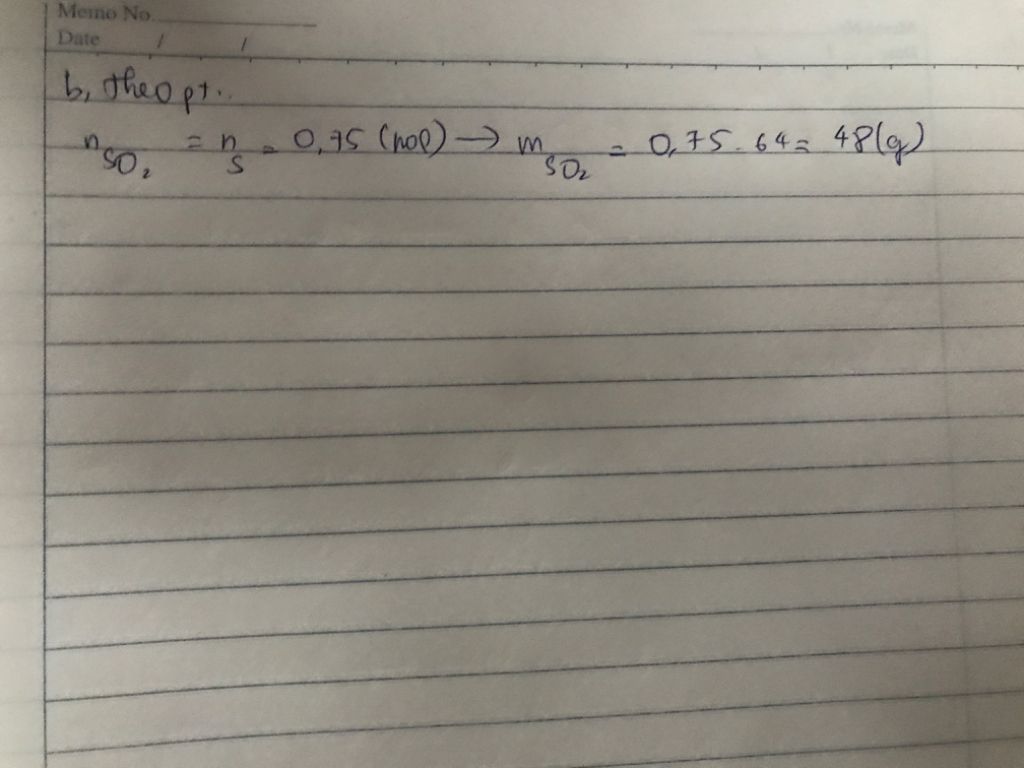 Memo No.
Date / /
b, theo pt..
n SO₂ = n S = 0,75 (mol) → m SO₂ = 0,75 . 64 = 48(g)